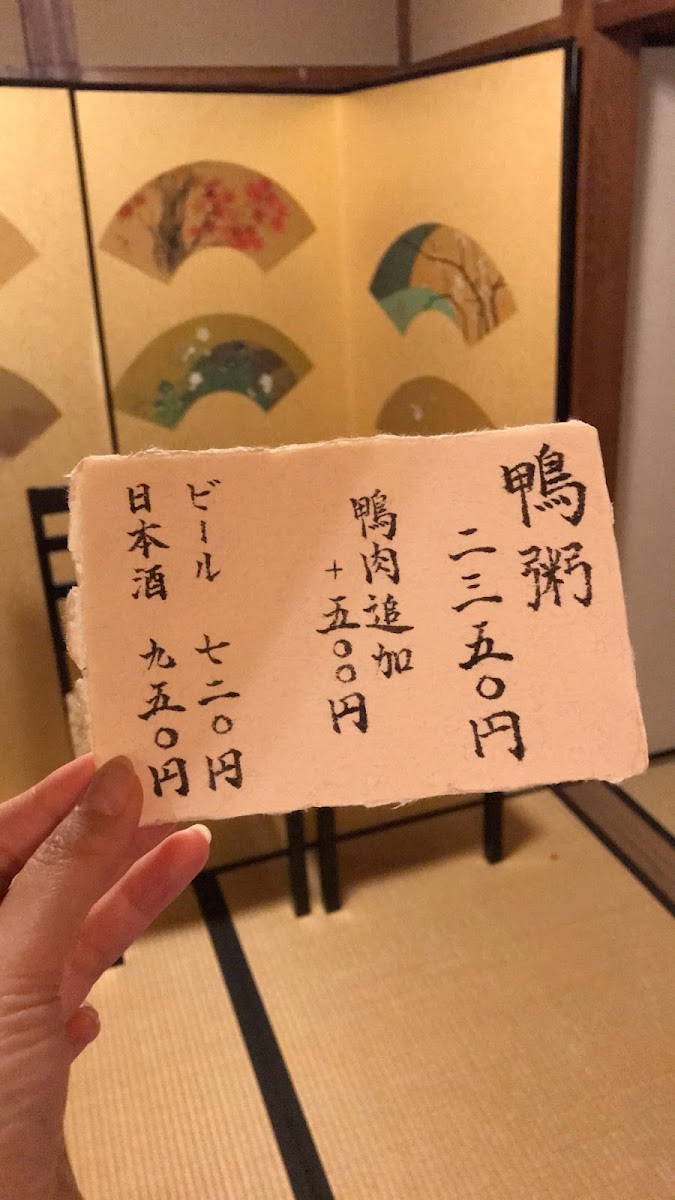 鴨粥
二三五〇円
鴨肉追加
+五〇〇円
ビール 七二〇円
日本酒 九五〇円